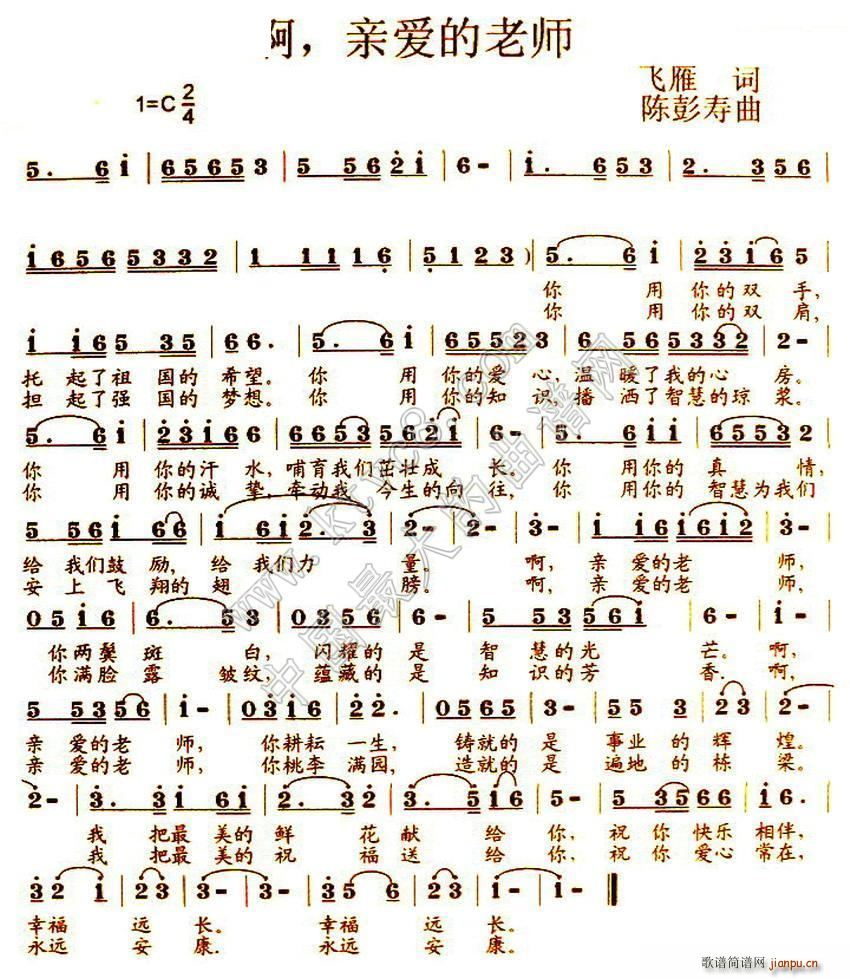 啊，亲爱的老师
飞雁 词
1=C 2/4
陈彭寿曲
5. 6 i | 6 5 6 5 3 | 5 5 6 2 i | 6 - | i. 6 5 3 | 2. 3 5 6 |
i 6 5 6 5 3 3 2 | 1 1 1 1 6 | 5 1 2 3 ) | 5. 6 i | 2 3 i 6 5 |
你 用 你的双 手，
你 用 你的双 肩，
i i 6 5 3 5 | 6 6. | 5. 6 i | 6 5 5 2 3 | 5 6 5 3 3 2 | 2 - |
托 起了祖 国的 希望。你 用 你的爱 心，温 暖了我的心 房。
担 起了强 国的 梦想。你 用 你的知 识，播 洒了智慧的琼 浆。
5. 6 i | 2 3 i 6 6 | 6 6 5 3 5 6 2 i | 6 - | 5. 6 i i | 6 5 5 3 2 |
你 用 你的汗 水，哺育我们茁壮成 长。你 用你的 真 情，
你 用 你的诚 挚，牵动我 今生的向 往，你 用你的 智慧为我们
5 5 6 i 6 6 | i 6 i 2. 3 | 2 - | 2 - | 3 - | i 6 i 6 i 2 | 3 - |
给 我们鼓 励，给 我们力 量。 啊，亲 爱的老 师，
安 上飞 翔的 翅 膀。 啊，亲 爱的老 师，
0 5 i 6 | 6. 5 3 | 0 3 5 6 | 6 - | 5 5 3 5 6 i | 6 - | i - |
你两鬓 斑 白，闪耀的 是 智 慧的光 芒。啊，
你满脸 露 皱纹，蕴藏的 是 知 识的芳 香．啊，
5 5 3 3 5 6 | i - | 0 3 i 6 | 2 2. | 0 5 6 5 | 3 - | 5 5 3 | 2 3 | 2 - |
亲 爱的老 师， 你耕耘 一生， 铸就的 是 事业 的 辉 煌。
亲 爱的老 师， 你桃李 满园， 造就的 是 遍地 的 栋 梁。
2 - | 3. 3 i 6 i | 2. 3 3 | 3. 5 i 6 | 5 - | 5 3 5 6 6 | i 6. |
我 把最 美的 鲜 花 献 给 你，祝 你 快乐 相伴，
我 把最 美的 祝 福 送 给 你，祝 你 爱心 常在，
3 2 i | 2 3 | 3 - | 3 - | 3 2 | 2 3 | i - | i - ‖
幸福 远 长。 幸福 远 长。
永远 安 康． 永远 安 康。
www.ktvc8.com
中国最大的曲谱网
歌谱简谱网 jianpu.cn